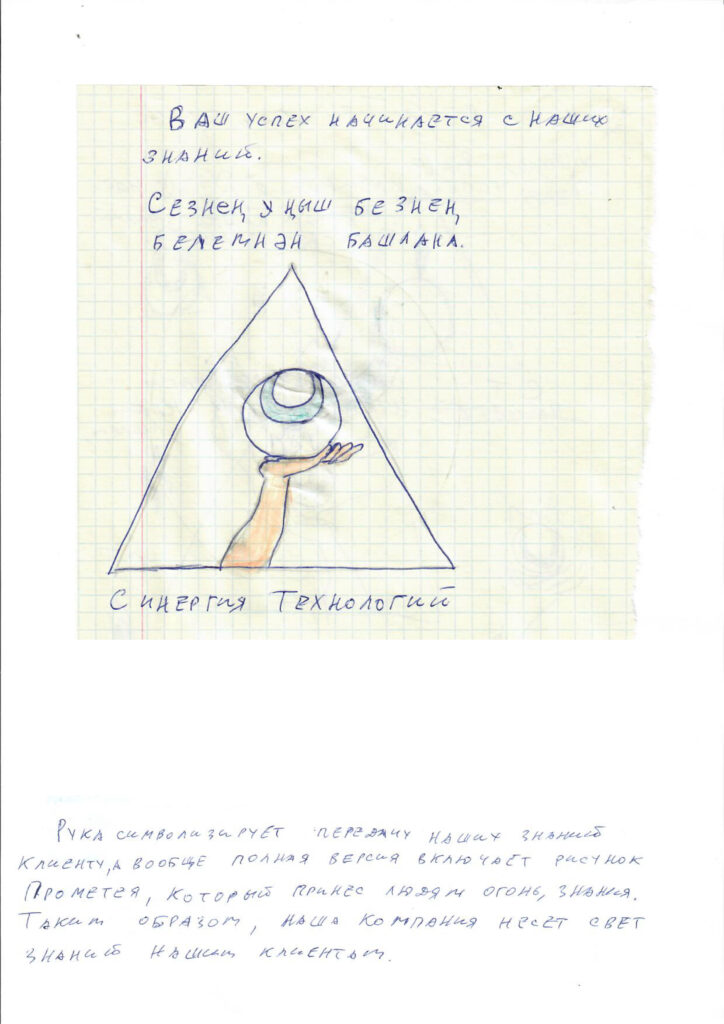 Ваш успех начинается с наших
знаний.
Сезнең уңыш безнең
белемнән башлана.
Синергия Технологий
Рука символизирует передачу наших знаний
клиенту, а вообще полная версия включает рисунок
Прометея, который принес людям огонь, знания.
Таким образом, наша компания несет свет
знаний нашим клиентам.